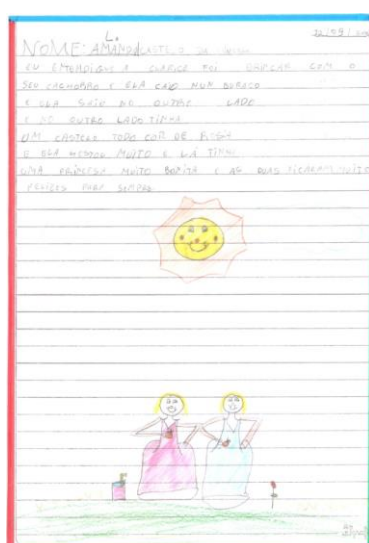 L.
NOME: AMANDA CASTELO DA
EU ENTENDI QUE A CLARICE FOI BRINCAR COM O
SEU CACHORRO E ELA CAIO NUN BURACO
E ELA SAIU DO OUTRO LADO
E NO OUTRO LADO TINHA
UM CASTELO TODO COR DE ROSA
E ELA GOSTOU MUITO E LÁ TINHA
UMA PRINCESA MUITO BONITA E AS DUAS FICARAM MUITO
FELIZES PARA SEMPRE